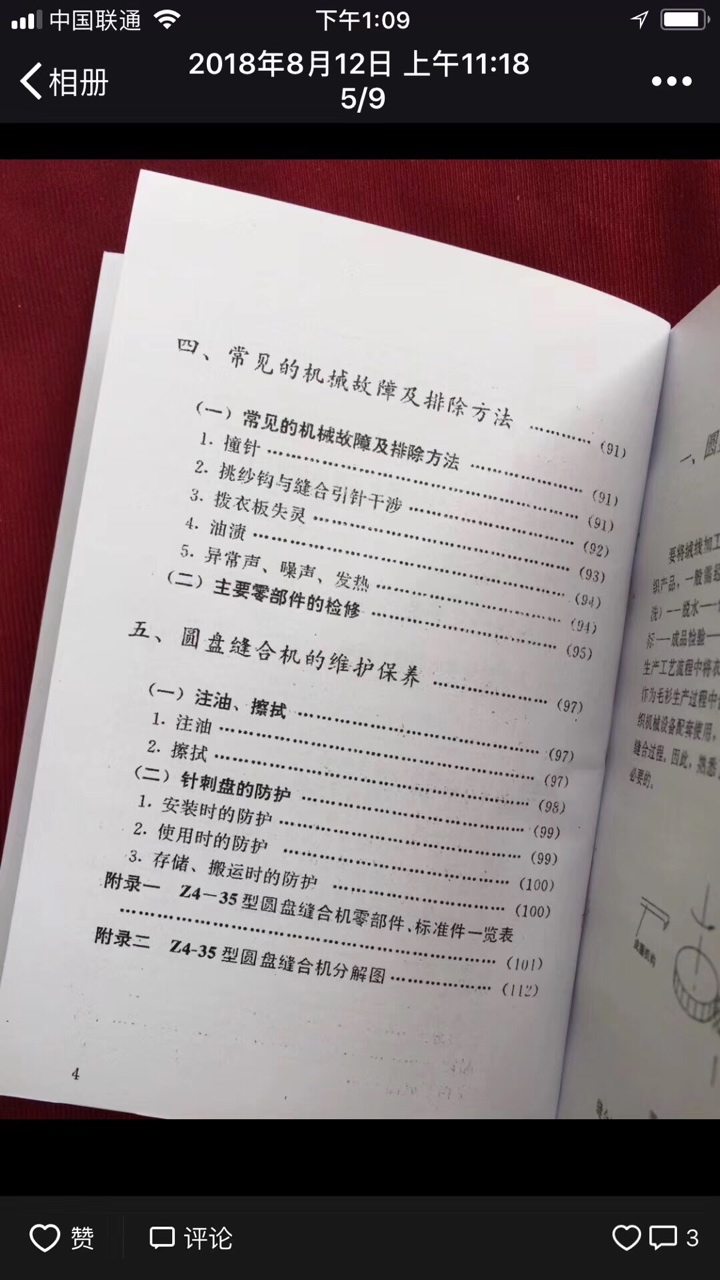 中国联通
下午1:09
相册
2018年8月12日 上午11:18
5/9
四、常见的机械故障及排除方法 ………… (91)
(一) 常见的机械故障及排除方法 ………… (91)
1. 撞针 ………… (91)
2. 挑纱钩与缝合引针干涉 ………… (92)
3. 拨衣板失灵 ………… (93)
4. 油渍 ………… (94)
5. 异常声、噪声、发热 ………… (94)
(二) 主要零部件的检修 ………… (95)
五、圆盘缝合机的维护保养 ………… (97)
(一) 注油、擦拭 ………… (97)
1. 注油 ………… (97)
2. 擦拭 ………… (98)
(二) 针刺盘的防护 ………… (99)
1. 安装时的防护 ………… (99)
2. 使用时的防护 ………… (100)
3. 存储、搬运时的防护 ………… (100)
附录一 Z4-35型圆盘缝合机零部件、标准件一览表
………… (101)
附录二 Z4-35型圆盘缝合机分解图 ………… (112)
4
一、圆
要将绒线加工
织产品，一般需经
洗)——脱水——
标——成品检验——
生产工艺流程中将衣
作为毛衫生产过程中
织机械设备配套使用。
缝合过程。因此，熟悉
必要的。
赞
评论
3